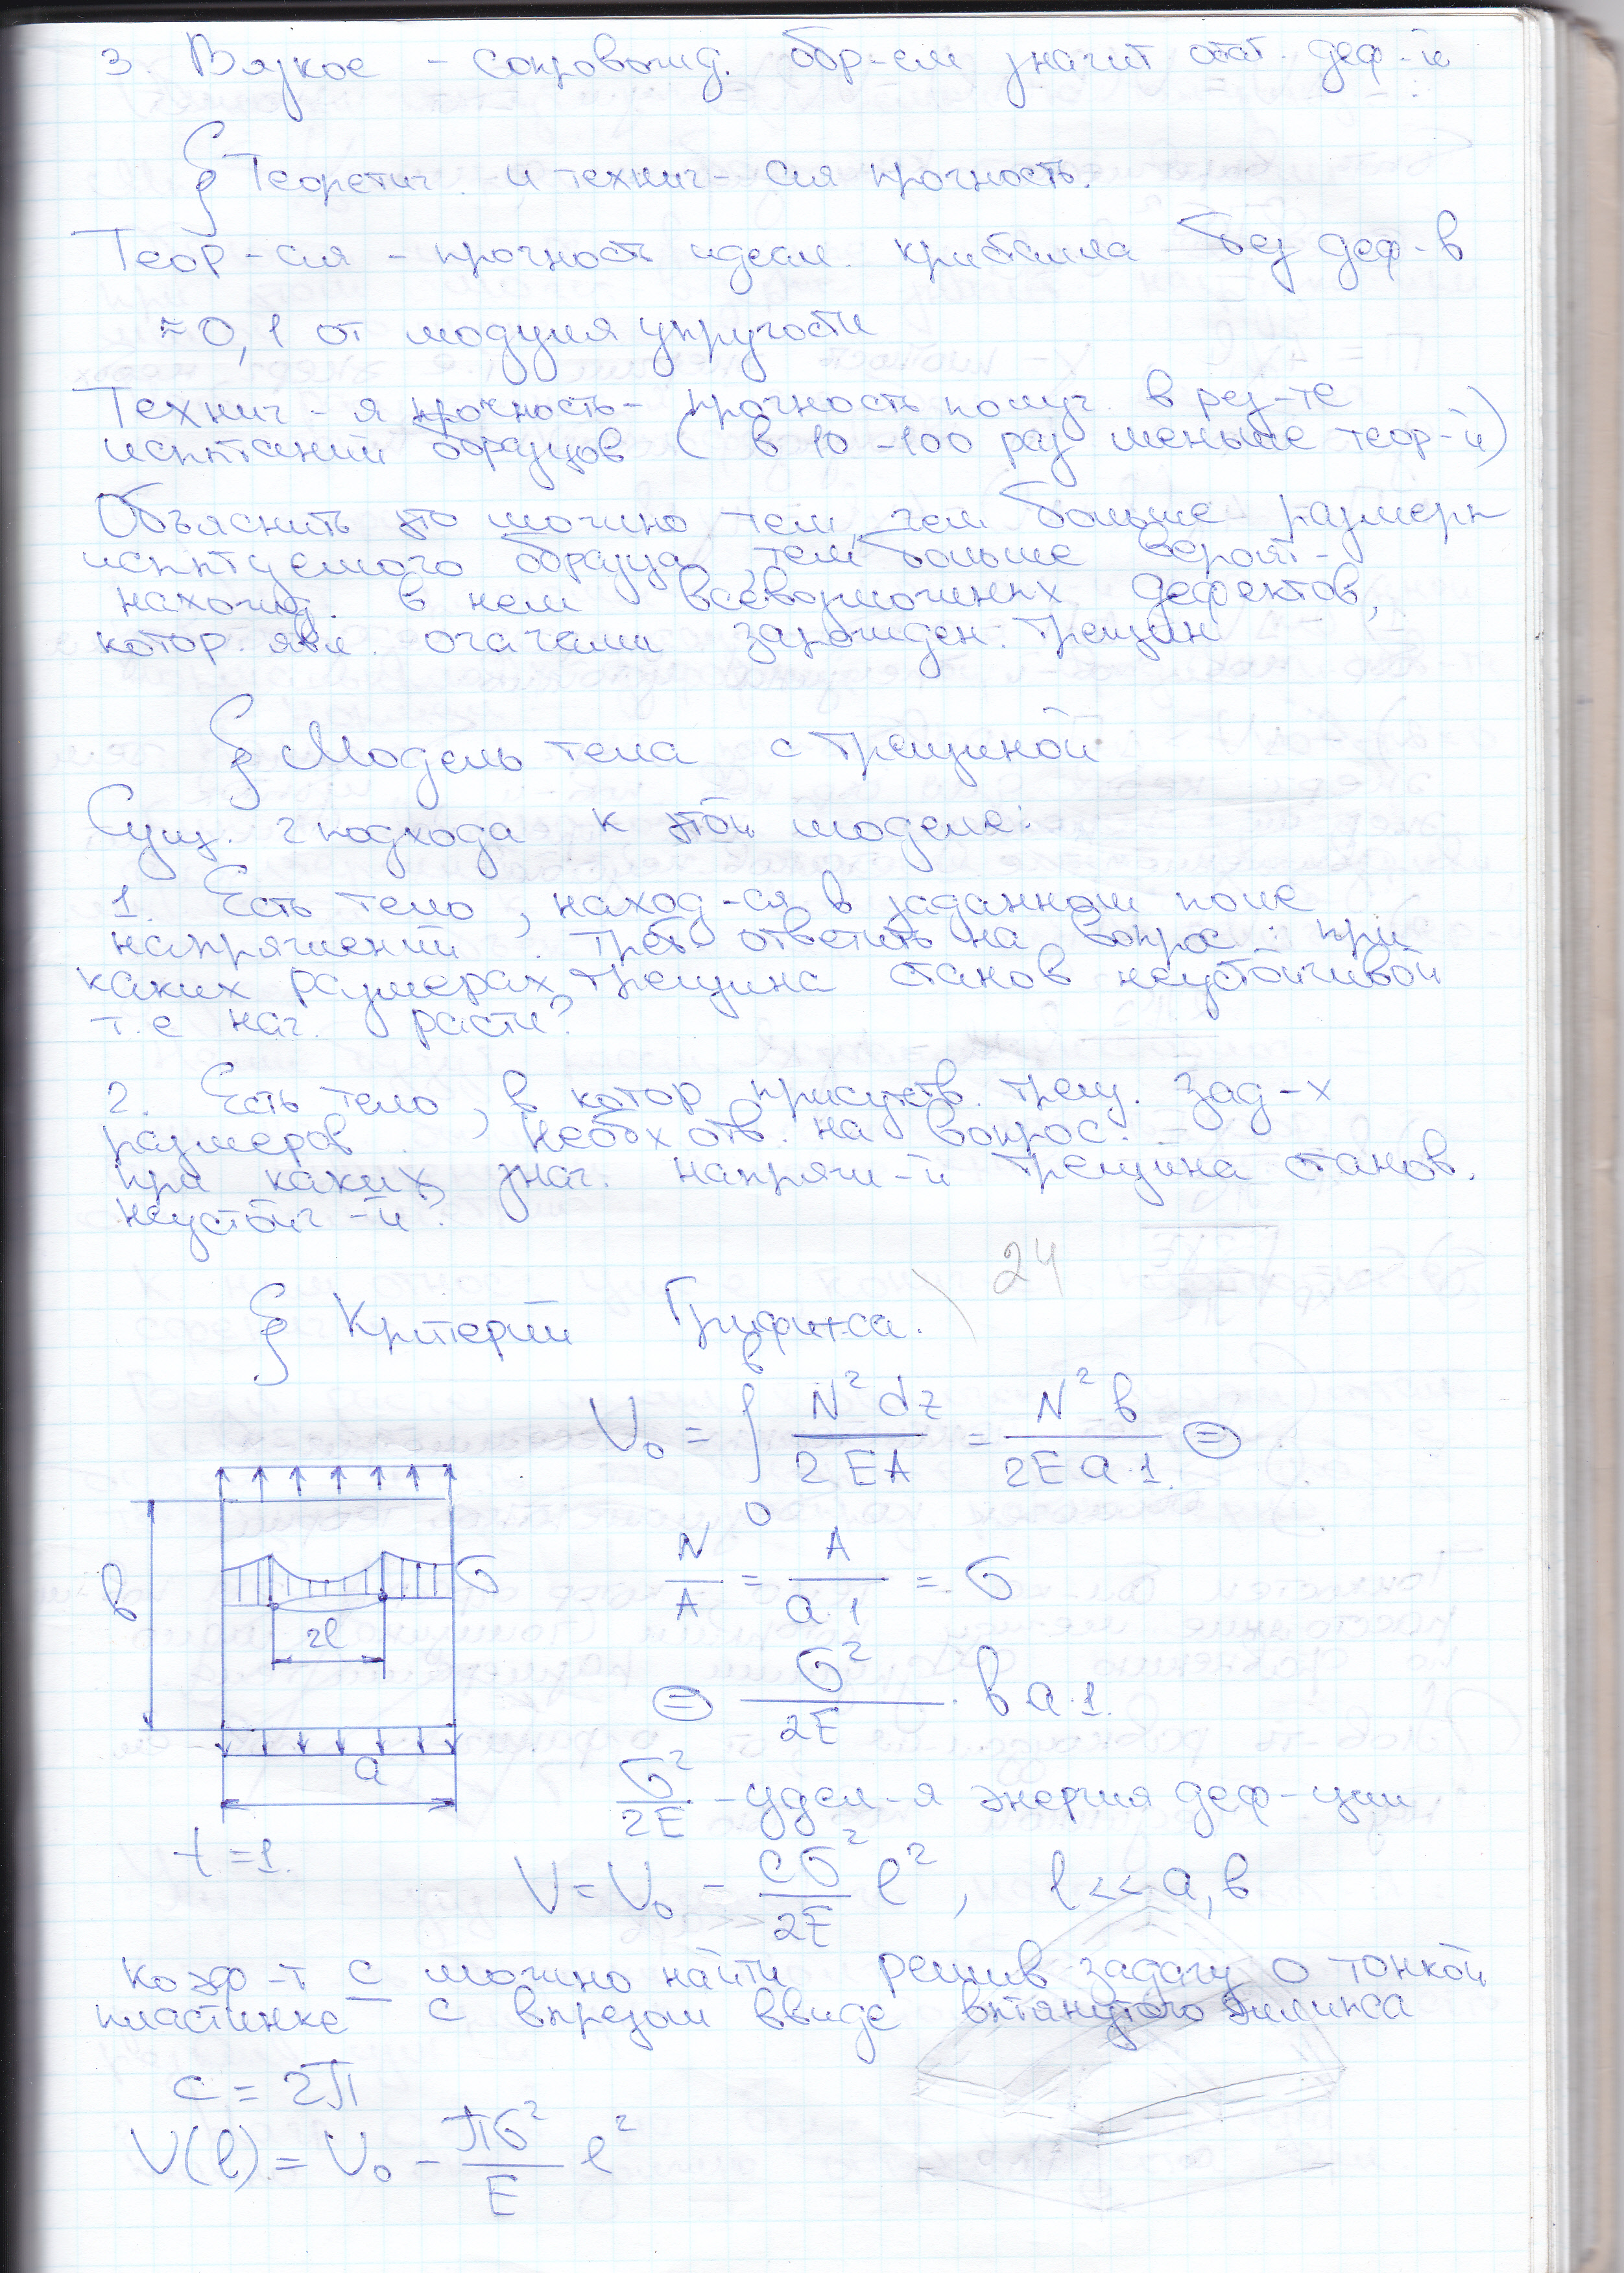 3. Вязкое - сопровожд. обр-ем значит ост. деф-й
§ Теоретич. и технич-ская прочность.
Теор-ая - прочность идеал. кристалла без деф-в
≈ 0,1 от модуля упругости
Технич-я прочность - прочность получ. в рез-те
испытаний образцов (в 10-100 раз меньше теор-й)
Объяснить это можно тем, чем больше размеры
испытуемого образца, тем больше вероят-
нахожд. в нем всевозможных дефектов,
котор. явл. очагами зарожден. трещин
§ Модель тела с трещиной
Сущ. 2 подхода к этой моделе:
1. Есть тело, наход-ся в заданном поле
напряжений. Треб ответить на вопрос: при
каких размерах трещина станов неустойчивой
т.е нач. расти?
2. Есть тело, в котор присутств. трещ. зад-х
размеров. Необх отв. на вопрос:
при каких знач. напряж-й трещина станов.
неустойч-й?
24
§ Критерий Гриффитса.
U₀ = ∫₀ᵇ N²dz / 2EA = N²b / 2Ea·1 ⊜
N/A = A/a·1 = σ
⊜ σ²/2E · ba·1.
σ²/2E - удел-я энергия деф-ции
b
σ
2l
a
t=1.
U = U₀ - cσ²/2E l², l << a, b
Коэф-т c можно найти решив задачу о тонкой
пластинке с вырезом ввиде вытянутого эллипса
c = 2π
U(l) = U₀ - πσ²/E l²